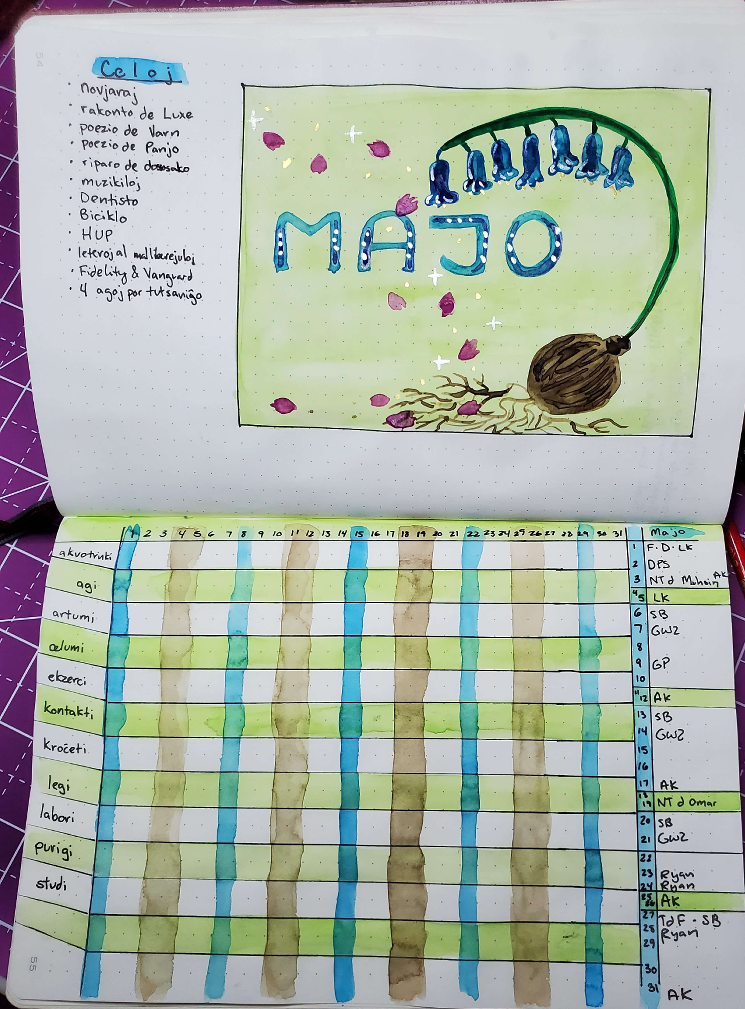 54
Celoj
· novjaraj
· rakonto de Luxe
· poezio de Varn
· poezio de Panjo
· riparo de dorsosako
· muzikiloj
· Dentisto
· Biciklo
· HUP
· leteroj al
· Fidelity & Vanguard
· 4 agoj por tutsaniĝo
MAJO
1 2 3 4 5 6 7 8 9 10 11 12 13 14 15 16 17 18 19 20 21 22 23 24 25 26 27 28 29 30 31
akvotrinki
agi
artumi
ĉelumi
ekzerci
kontakti
kroĉeti
legi
labori
purigi
studi
55
Majo
1 F·D·LK
2 DPS
3 NT d Mohsin AK
4 5 LK
6 SB
7 GW2
8
9 GP
10
11 12 AK
13 SB
14 GW2
15
16
17 AK
18 19 NT d Omar
20 SB
21 GW2
22
23 Ryan
24 Ryan
25 26 AK
27 TdF · SB
28 Ryan
29
30
31 AK